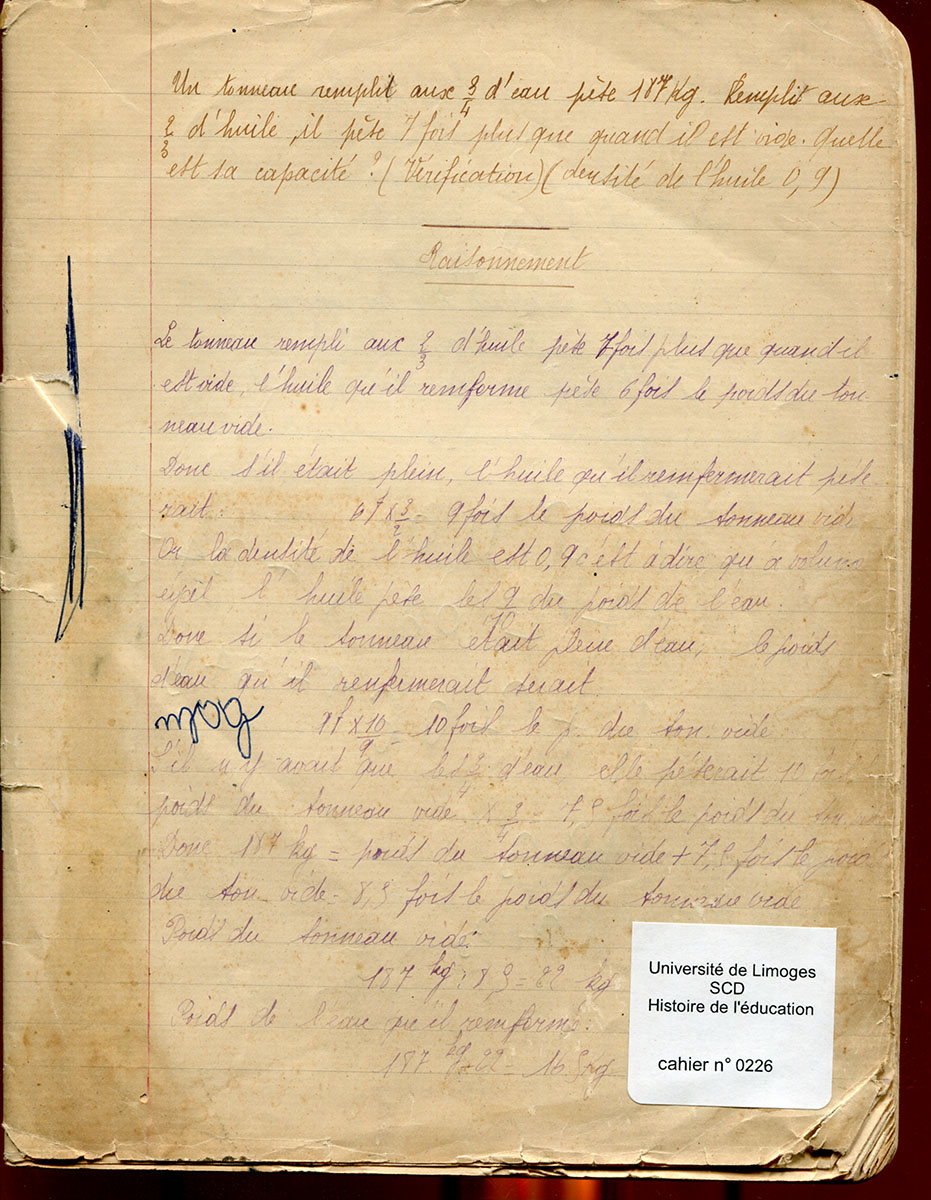 Un tonneau remplit aux 3/4 d'eau pèse 187 kg. Remplit aux
2/3 d'huile, il pèse 7 fois plus que quand il est vide. Quelle
est sa capacité ? (Vérification) (densité de l'huile 0,9)
Raisonnement
Le tonneau rempli aux 2/3 d'huile pèse 7 fois plus que quand il
est vide, l'huile qu'il remferme pèse 6 fois le poids du ton-
neau vide.
Donc s'il était plein, l'huile qu'il remfermerait pèse
rait : 6f × 3/2 = 9 fois le poids du tonneau vide
Or la densité de l'huile est 0,9 c'est à dire qu'a volume
égal l'huile pèse les 9/10 du poids de l'eau.
Donc si le tonneau était plein d'eau, le poids
d'eau qu'il renfermerait serait
9f × 10/9 = 10 fois le p. du ton. vide
S'il n'y avait que les 3/4 d'eau elle pèserait 10 fois
poids du tonneau vide × 3/4 = 7,5 fois le poids du
Donc 187 kg = poids du tonneau vide + 7,5 fois le poids
du ton vide = 8,5 fois le poids du tonneau vide
Poids du tonneau vide :
187 kg : 8,5 = 22 kg
Poids de l'eau qu'il remferme :
187 kg - 22 = 165 kg
Université de Limoges
SCD
Histoire de l'éducation
cahier n° 0226